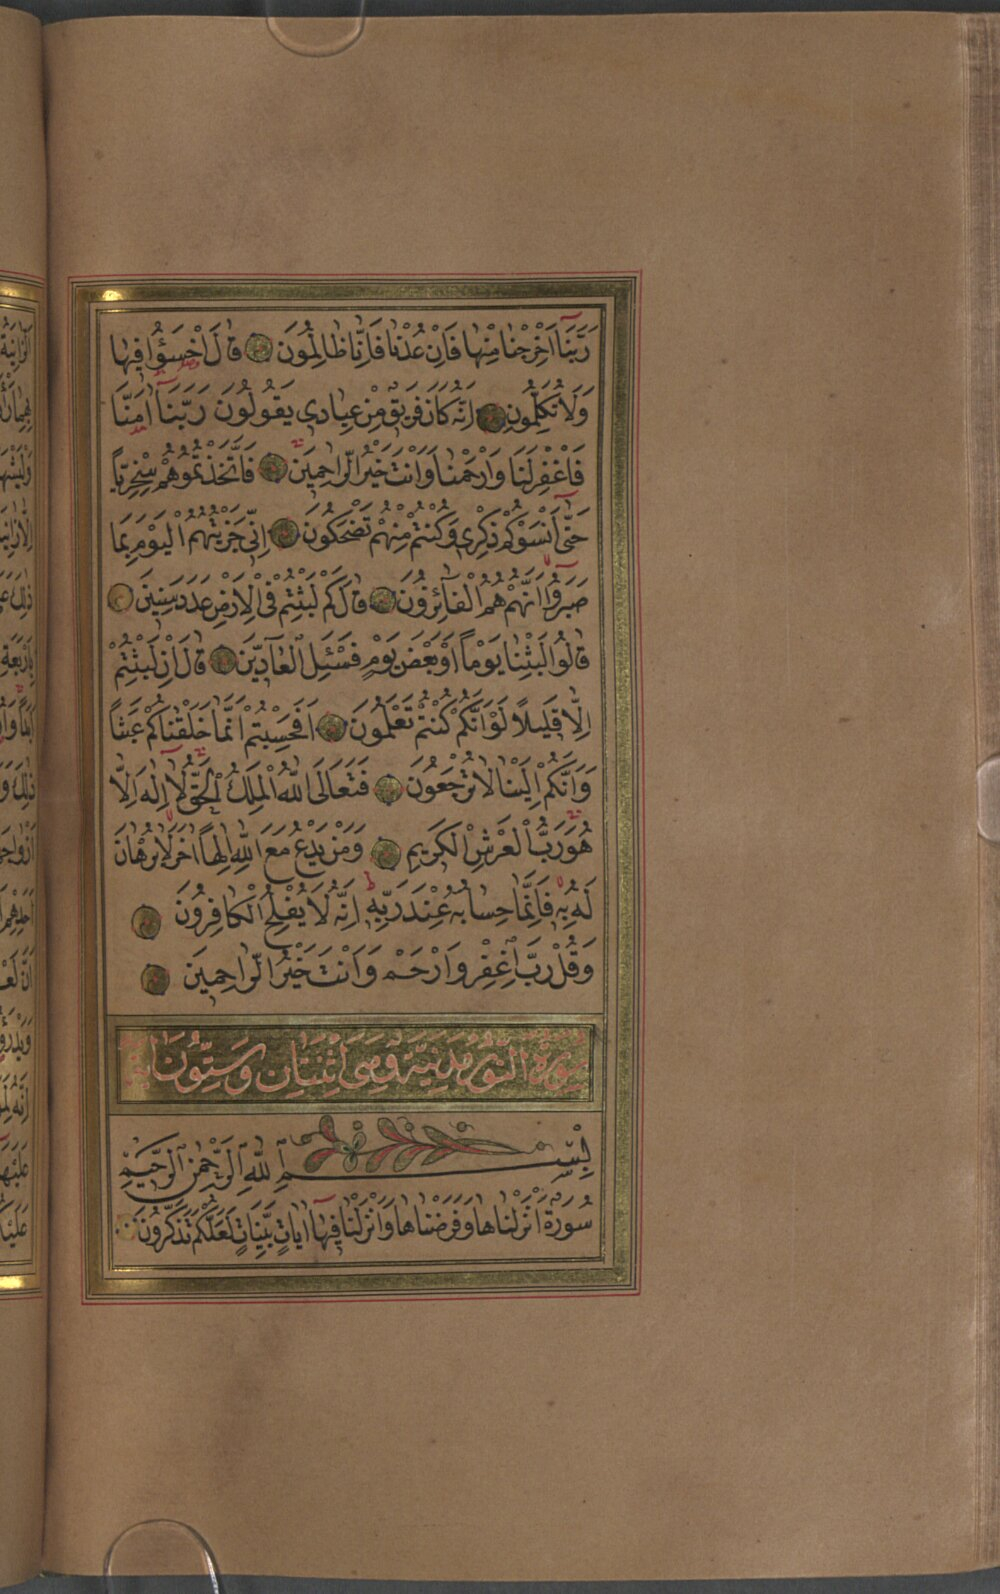 رَبَّنَا اَخْرِجْنَا مِنْهَا فَاِنْ عُدْنَا فَاِنَّا ظَالِمُونَ قَالَ اخْسَؤُا فِيهَا
وَلَا تُكَلِّمُونِ اِنَّهُ كَانَ فَرِيقٌ مِنْ عِبَادِى يَقُولُونَ رَبَّنَا اٰمَنَّا
فَاغْفِرْلَنَا وَارْحَمْنَا وَاَنْتَ خَيْرُ الرَّاحِمِينَ فَاتَّخَذْتُمُوهُمْ سِخْرِيًّا
حَتّٰى اَنْسَوْكُمْ ذِكْرِى وَكُنْتُمْ مِنْهُمْ تَضْحَكُونَ اِنِّى جَزَيْتُهُمُ الْيَوْمَ بِمَا
صَبَرُوا اَنَّهُمْ هُمُ الْفَائِزُونَ قَالَ كَمْ لَبِثْتُمْ فِى الْاَرْضِ عَدَدَ سِنِينَ
قَالُوا لَبِثْنَا يَوْمًا اَوْ بَعْضَ يَوْمٍ فَسْئَلِ الْعَادِّينَ قَالَ اِنْ لَبِثْتُمْ
اِلَّا قَلِيلًا لَوْ اَنَّكُمْ كُنْتُمْ تَعْلَمُونَ اَفَحَسِبْتُمْ اَنَّمَا خَلَقْنَاكُمْ عَبَثًا
وَاَنَّكُمْ اِلَيْنَا لَا تُرْجَعُونَ فَتَعَالَى اللّٰهُ الْمَلِكُ الْحَقُّ لَا اِلٰهَ اِلَّا
هُوَ رَبُّ الْعَرْشِ الْكَرِيمِ وَمَنْ يَدْعُ مَعَ اللّٰهِ اِلٰهًا اٰخَرَ لَا بُرْهَانَ
لَهُ بِهِ فَاِنَّمَا حِسَابُهُ عِنْدَ رَبِّهِ اِنَّهُ لَا يُفْلِحُ الْكَافِرُونَ
وَقُلْ رَبِّ اغْفِرْ وَارْحَمْ وَاَنْتَ خَيْرُ الرَّاحِمِينَ
سُورَةُ النُّورِ مَدَنِيَّةٌ وَهِىَ اثْنَتَانِ وَسِتُّونَ
بِسْمِ اللّٰهِ الرَّحْمٰنِ الرَّحِيمِ
سُورَةٌ اَنْزَلْنَاهَا وَفَرَضْنَاهَا وَاَنْزَلْنَا فِيهَا اٰيَاتٍ بَيِّنَاتٍ لَعَلَّكُمْ تَذَكَّرُونَ